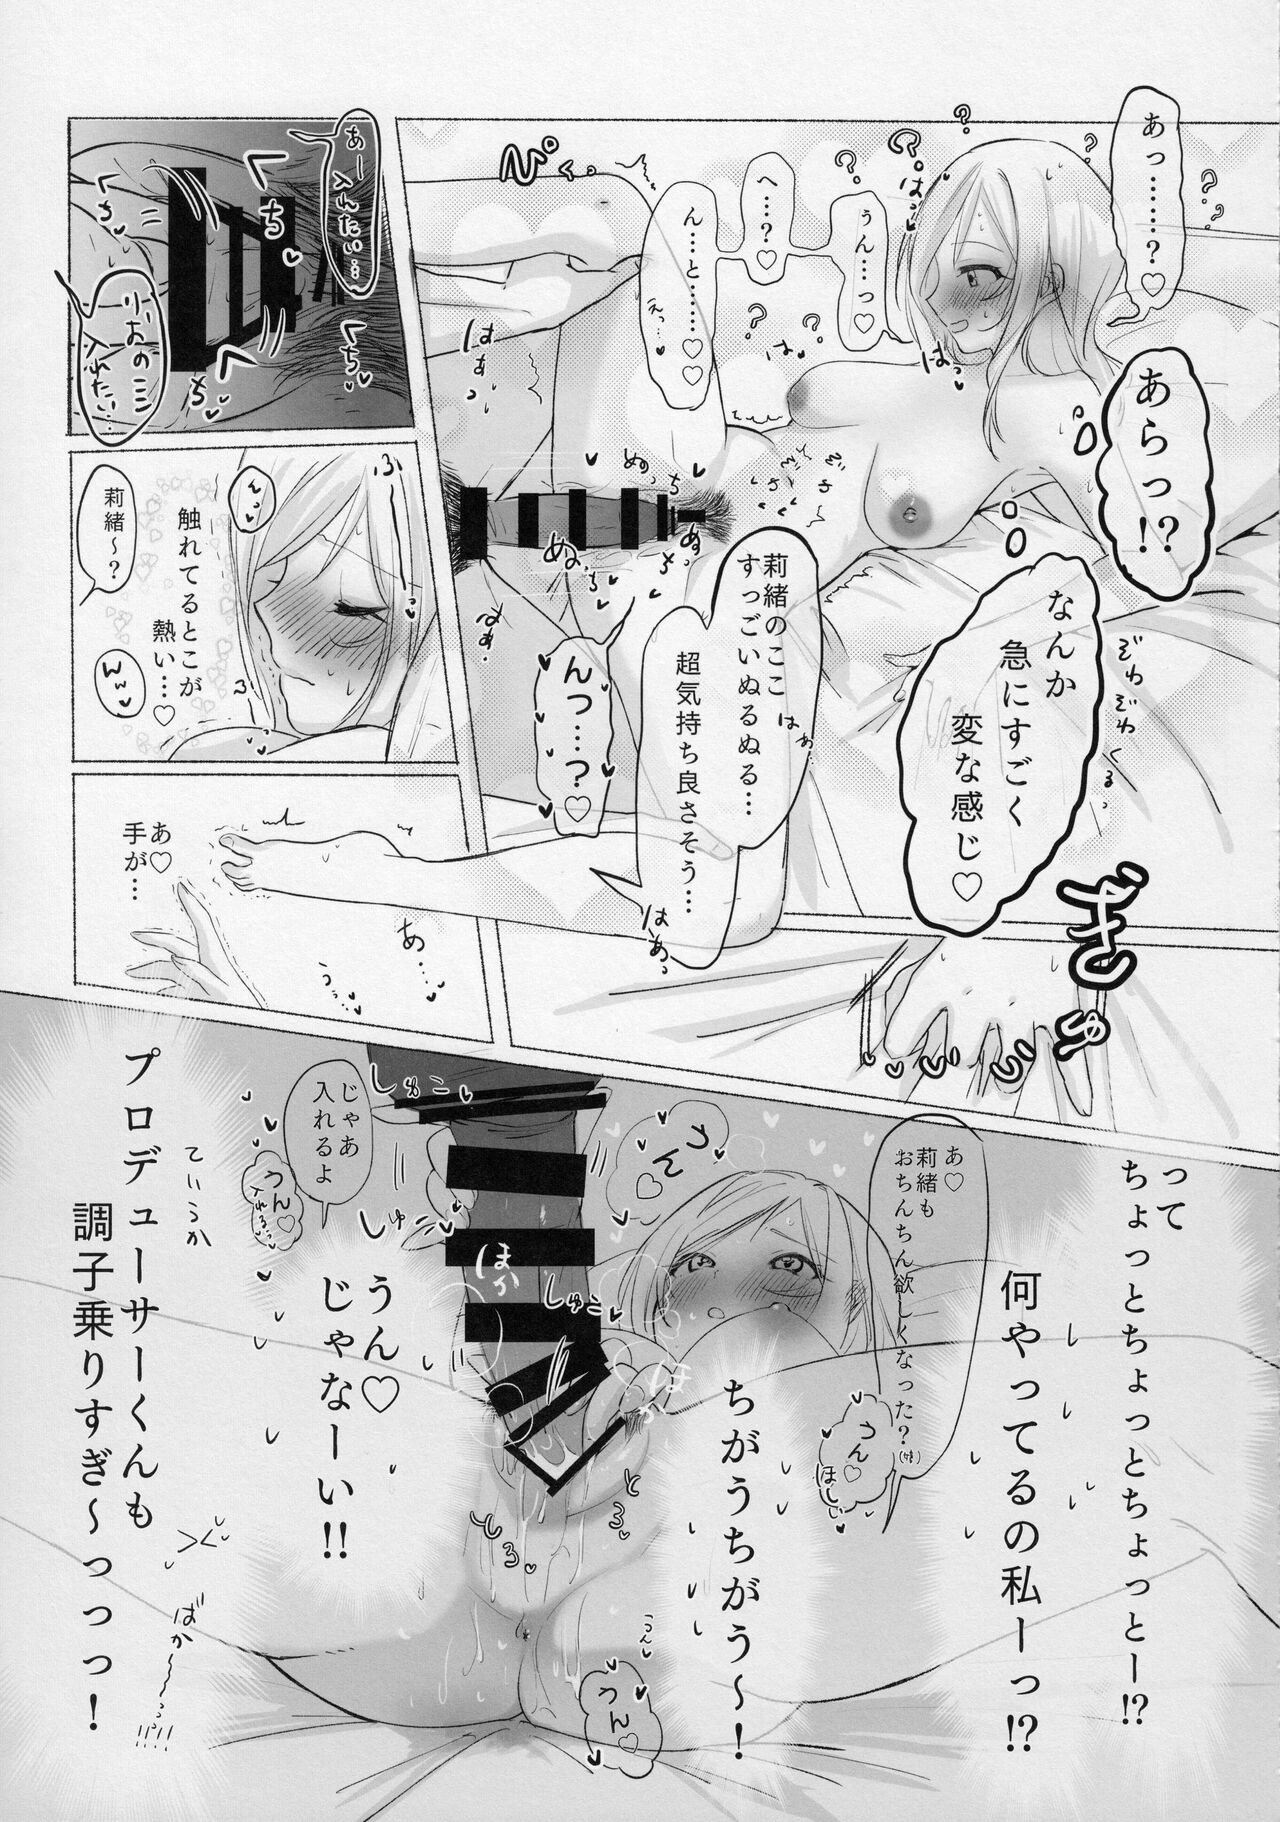 あっ………？♡
うん…っ♡
へ…？♡
ん…と………♡♡♡
えっ…
はっ
はっ
はぁっ
ぴくっ
あらっ!?
なんか
急にすごく
変な感じ♡
ぞわぞわ
くるっ
莉緒のここ
すっごいぬるぬる…
超気持ち良さそう…
はぁ
はぁっ
んっ…っ？♡
ぬっち
ぬっち
はぁっ
はぁ
あー
入れたい…
りおのこ
入れたい…
くちくち
くちくち
莉緒〜？
んっ
触れてるとこが
熱い…♡
んっ
ふーーっ
ふ
あ♡
手が…
あ…
うっ…
ぎゅ
って
ちょっとちょっとちょっとー!?
何やってるの私ーっ!?
あ♡
莉緒も
おちんちん欲しくなった？
うん♡
ほしい
ちがうちがう〜！
うん♡
じゃあ
入れるよ
うん♡
入れるっ
しゅこ
しゅこ
しゅこ
ほか
ほか
とろ
とろ
うん♡
じゃなーい!!
うん♡
ていうか
プロデューサーくんも
調子乗りすぎ〜っっっ！
ばか〜〜っ!!!!